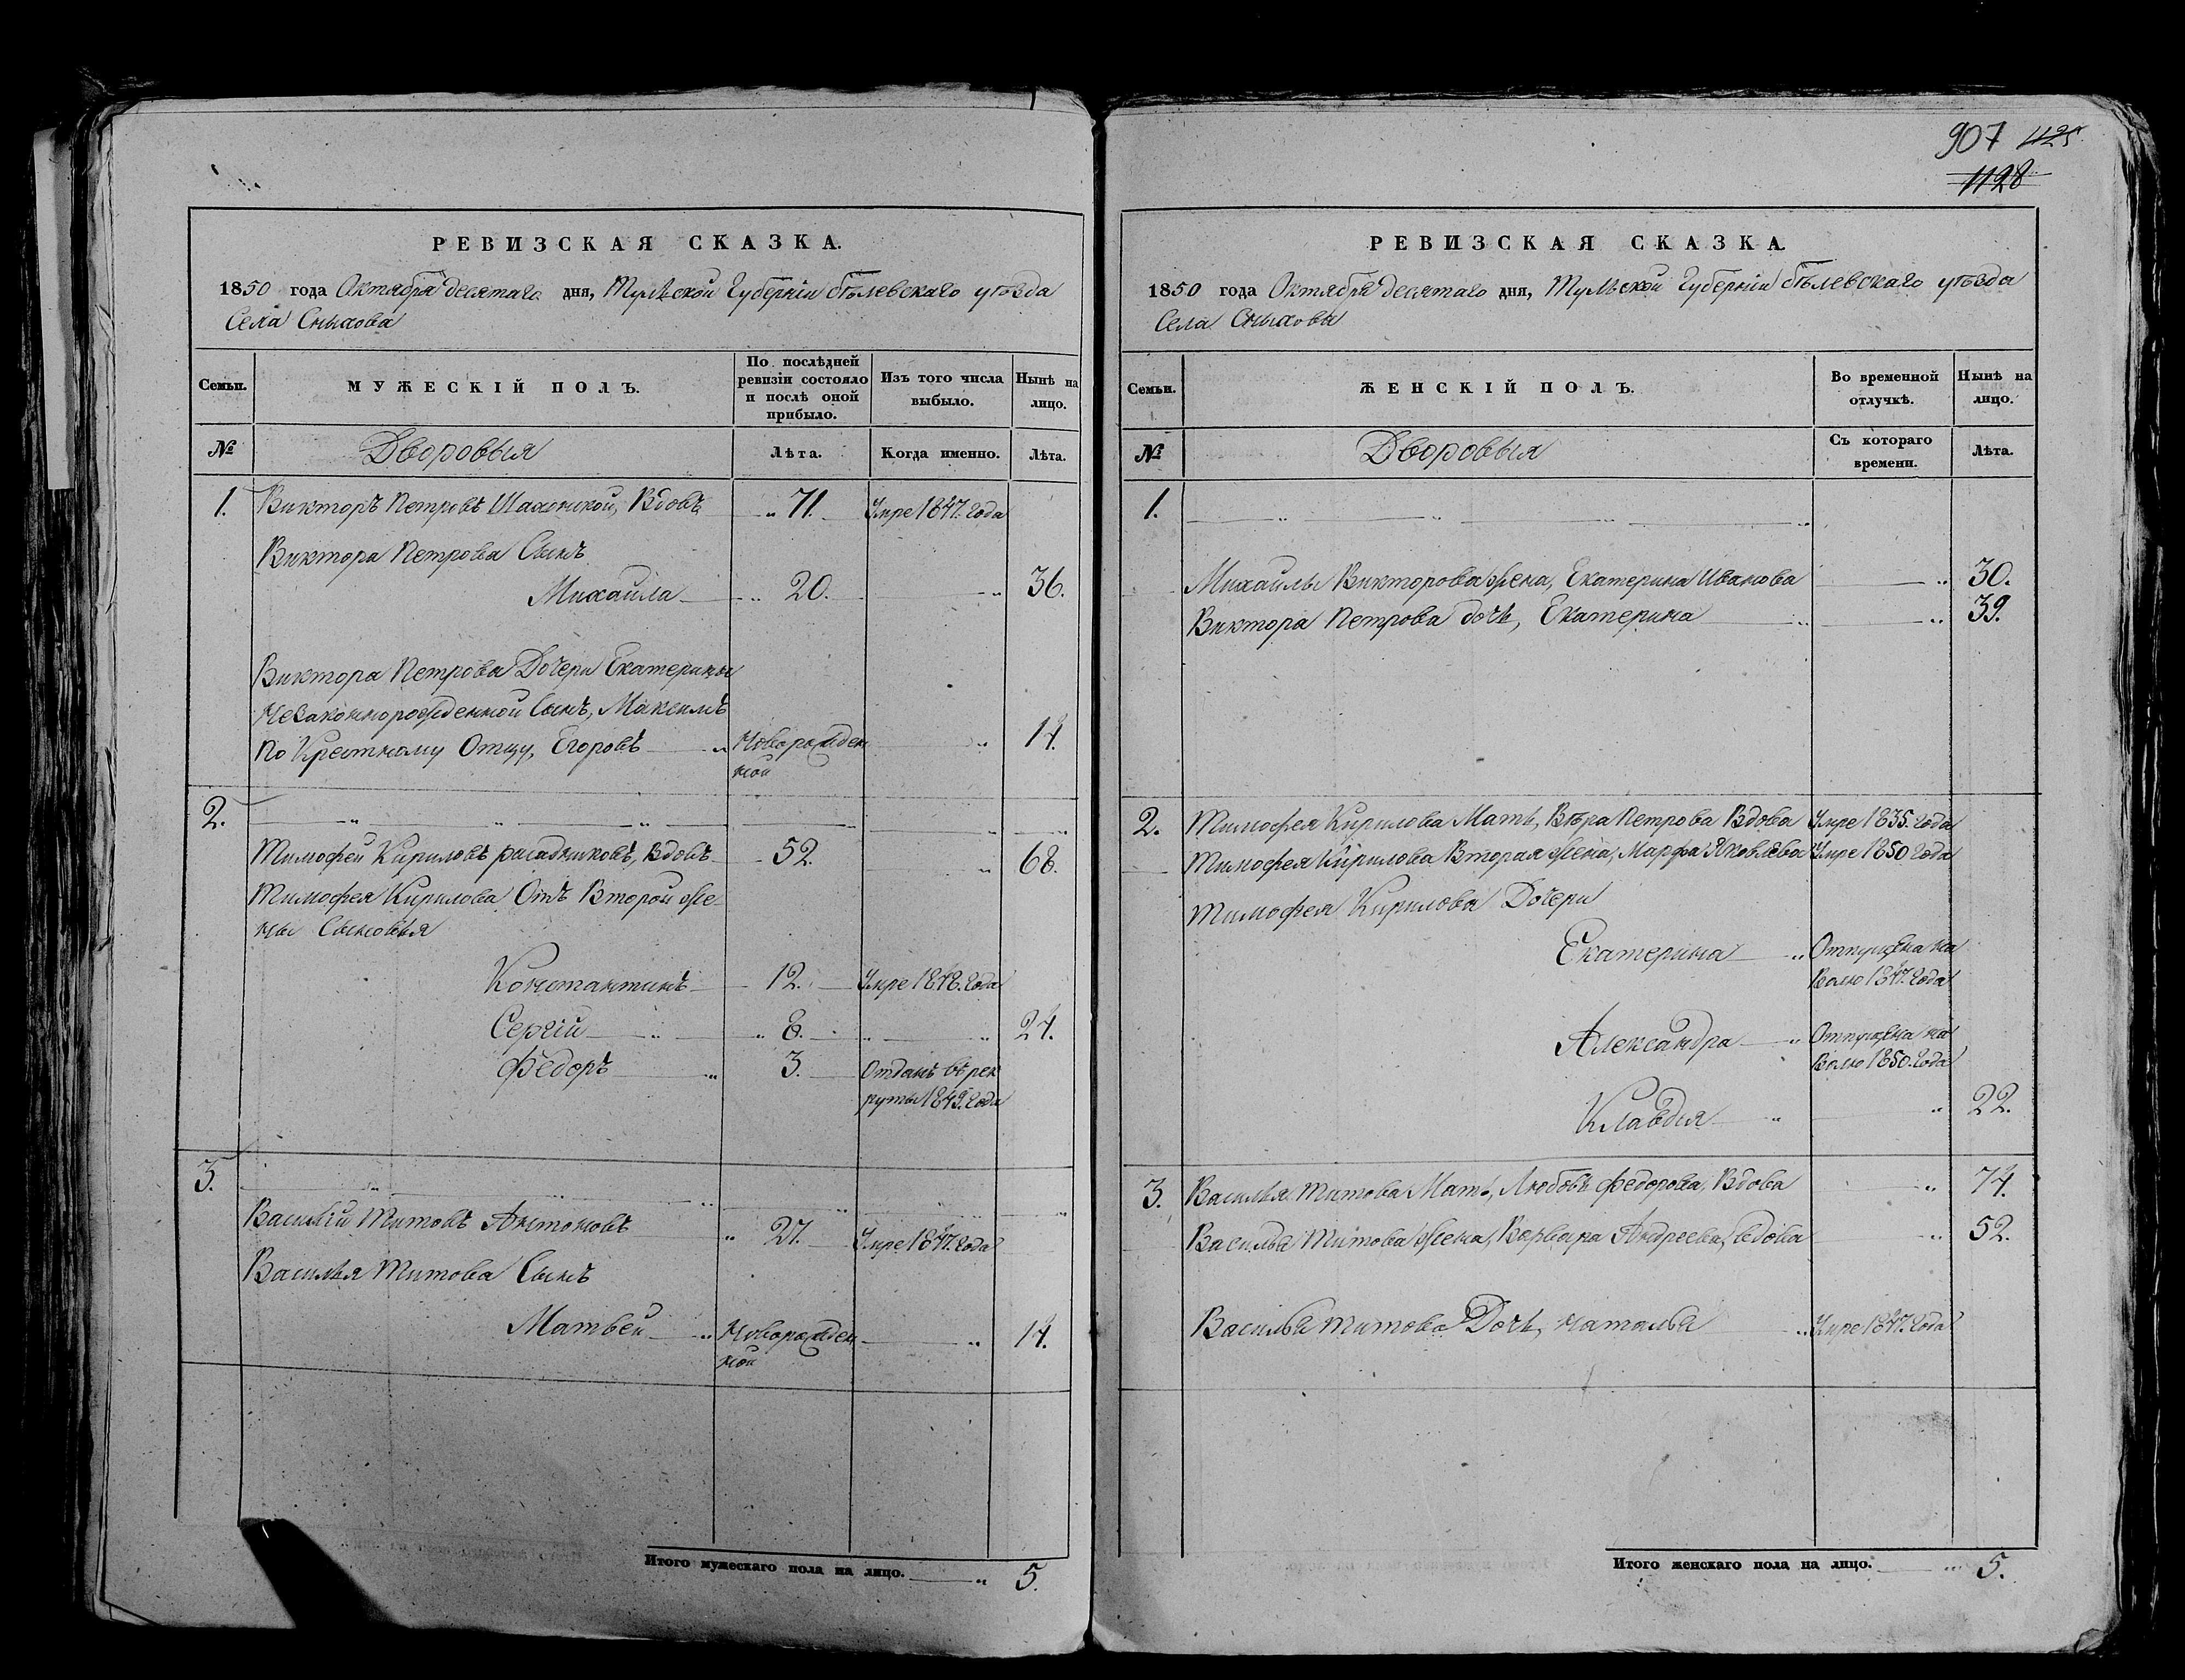 907 1125
1128
РЕВИЗСКАЯ СКАЗКА.
1850 года Октября десятаго дня, Тульской Губерніи Бѣлевскаго уѣзда
Села Сныхова
Семьи.
МУЖЕСКІЙ ПОЛЪ.
По послѣдней ревизіи состояло и послѣ оной прибыло.
Изъ того числа выбыло.
Нынѣ на лицо.
№
Дворовыя
Лѣта.
Когда именно.
Лѣта.
1. Викторъ Петровъ Шахонской, Вдовъ „ 71. Умре 1847. года
Виктора Петрова Сынъ
Михайла „ 20. „ 36.
Виктора Петрова Дочери Екатерины
Незаконнорожденной Сынъ, Максимъ
по Крестному Отцу, Егоровъ „ Новорожден „ 14.
ной
2.
Тимофей Кириловъ расадниковъ, вдовъ 52. „ 68.
Тимофея Кирилова Отъ Второй же-
ны Сыновья
Константинъ 12. Умре 1848. года
Сергій „ 8. „ „ 24.
Федоръ „ 3. Отданъ въ рек
руты 1849. года
3.
Василій Титовъ Антоновъ „ 27. Умре 1847. года
Василья Титова Сынъ
Матвей „ Новорожден „ 14.
ной
Итого мужескаго пола на лицо. „ 5.
РЕВИЗСКАЯ СКАЗКА.
1850 года Октября десятаго дня, Тульской Губерніи Бѣлевскаго уѣзда
Села Сныхова
Семьи.
ЖЕНСКІЙ ПОЛЪ.
Во временной отлучкѣ.
Нынѣ на лицо.
№
Дворовыя
Съ котораго времени.
Лѣта.
1.
Михайлы Викторова жена, Екатерина Иванова „ 30.
Виктора Петрова дочь, Екатерина „ „ 39.
2. Тимофея Кирилова Мать, Вѣра Петрова Вдова Умре 1835. года
Тимофея Кирилова Вторая жена, Марфа Яковлева Умре 1850 года
Тимофея Кирилова Дочери
Екатерина „ Отпущена на
Волю 1847. года
Александра „ Отпущена на
Волю 1850. года
Клавдія „ „ 22.
3. Василья Титова Мать, Любовь Федорова, Вдова „ 74.
Василья Титова жена, Варвара Андреева, вдова „ 52.
Василья Титова Дочь, Наталья „ Умре 1847. года
Итого женскаго пола на лицо. „ 5.